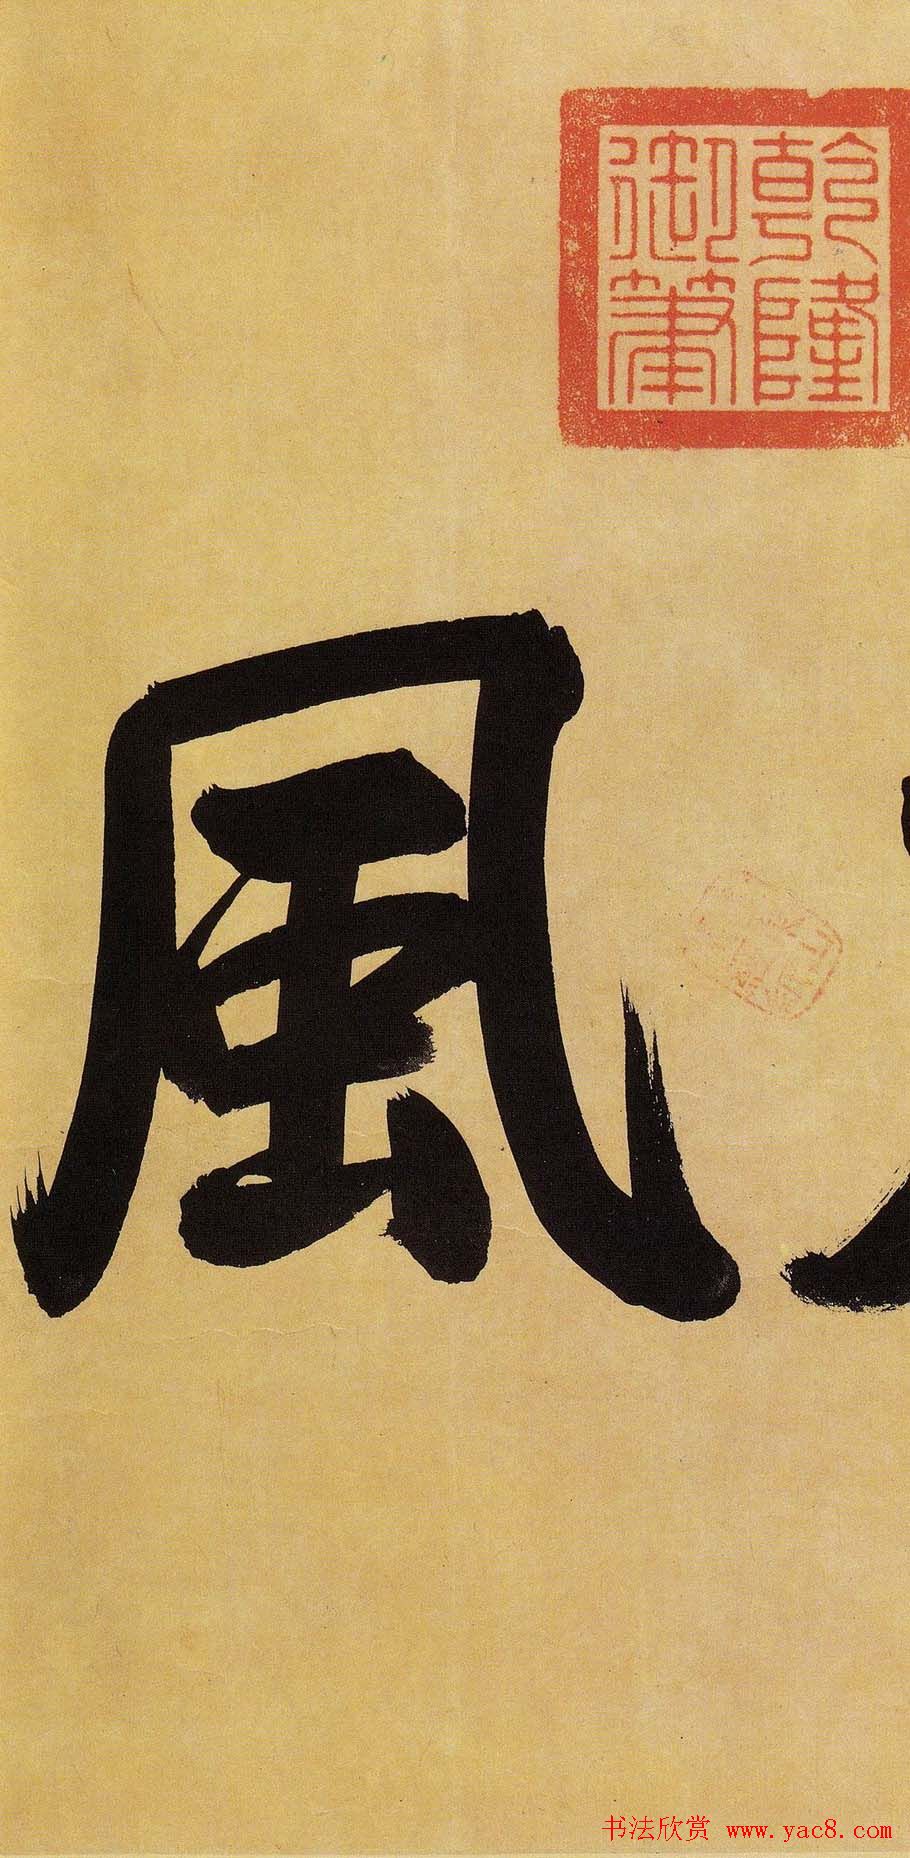 乾隆
御筆
風
书法欣赏 www.yac8.com